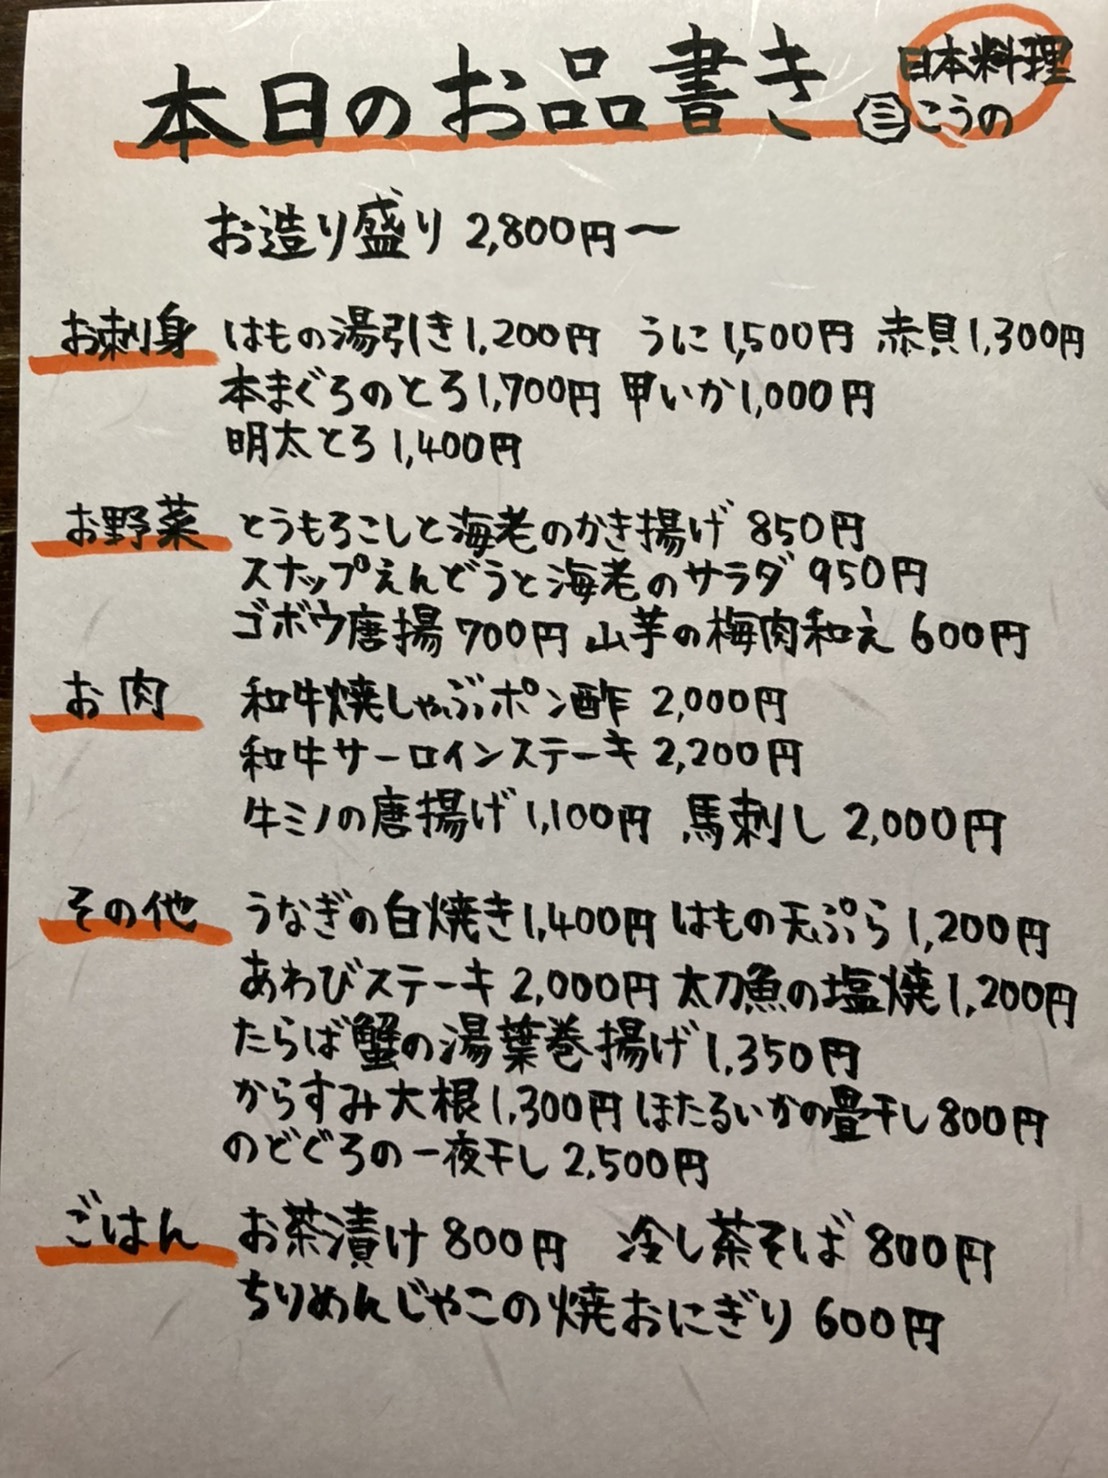 本日のお品書き
日本料理
こうの
お造り盛り 2,800円〜
お刺身 はもの湯引き1,200円 うに1,500円 赤貝1,300円
本まぐろのとろ1,700円 甲いか1,000円
明太とろ1,400円
お野菜 とうもろこしと海老のかき揚げ 850円
スナップえんどうと海老のサラダ 950円
ゴボウ唐揚700円 山芋の梅肉和え 600円
お肉 和牛焼しゃぶポン酢 2,000円
和牛サーロインステーキ2,200円
牛ミノの唐揚げ1,100円 馬刺し 2,000円
その他 うなぎの白焼き1,400円 はもの天ぷら1,200円
あわびステーキ2,000円 太刀魚の塩焼1,200円
たらば蟹の湯葉巻揚げ1,350円
からすみ大根1,300円 ほたるいかの畳干し800円
のどぐろの一夜干し2,500円
ごはん お茶漬け800円 冷し茶そば800円
ちりめんじゃこの焼おにぎり 600円